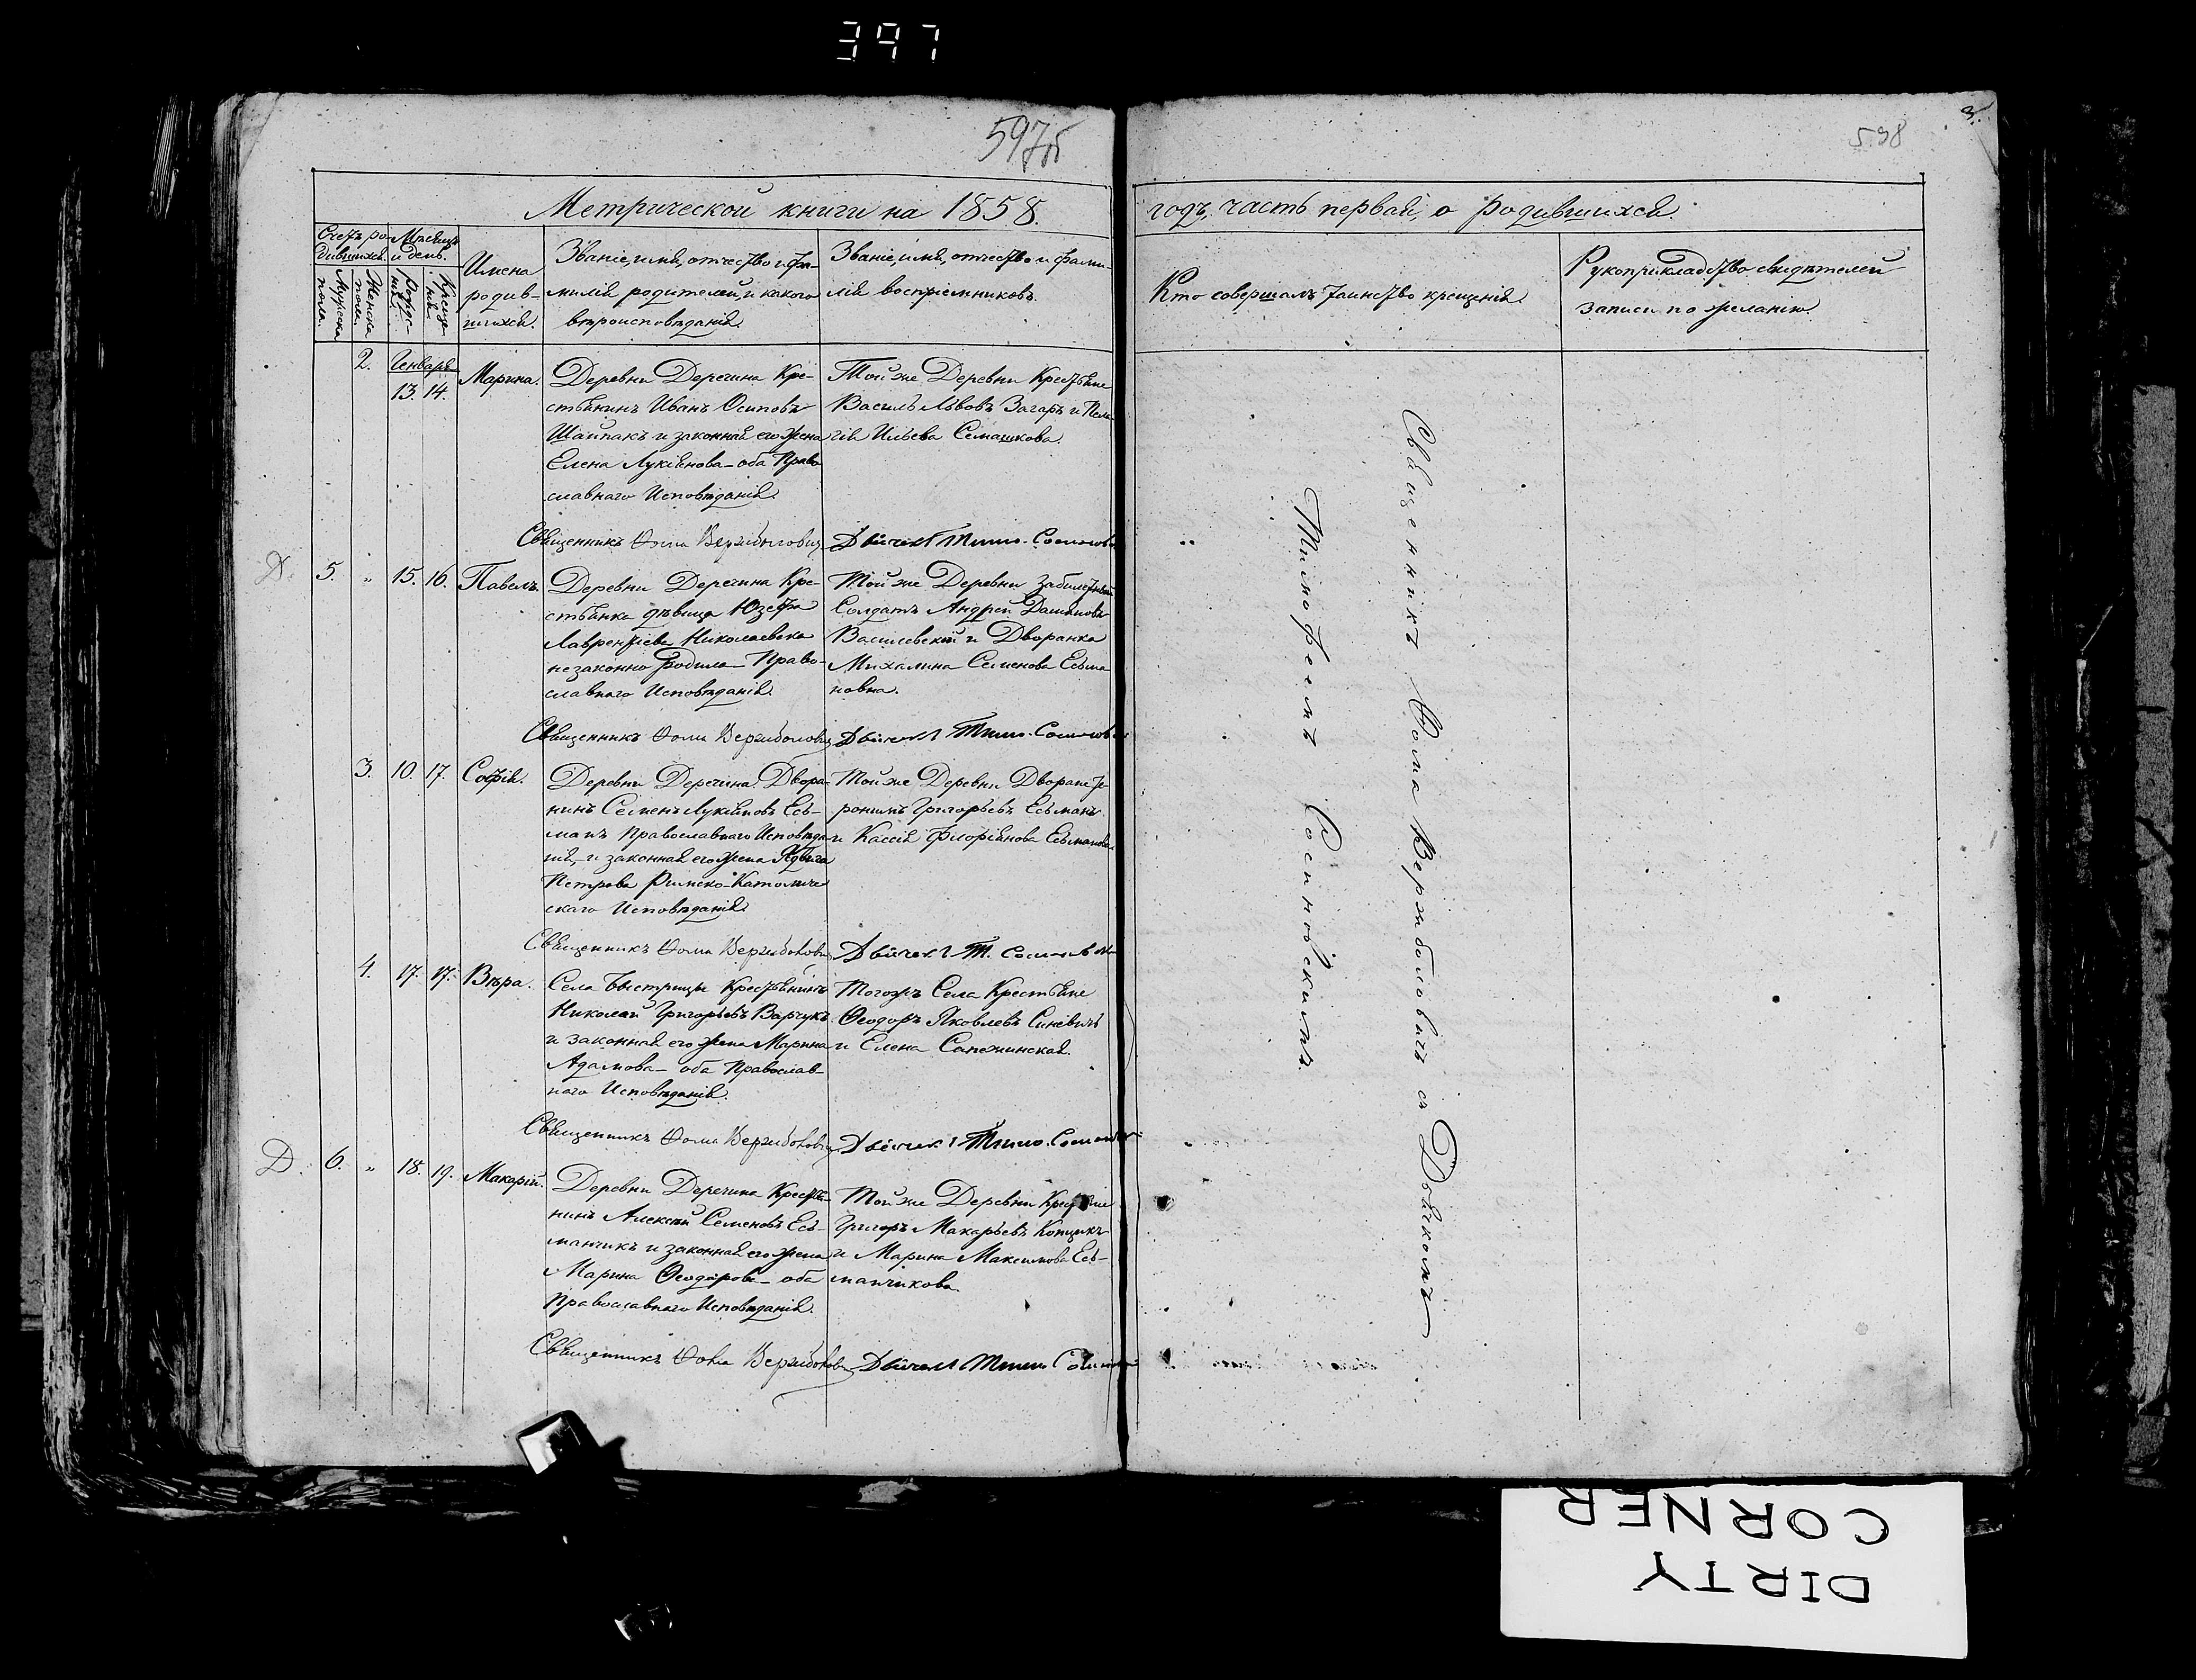 397
597об
598
3.
Метрической книги на 1858.
годъ, часть первая, о родившихся.
Счетъ родившихся.
Мужеска пола.
Женска пола.
Мѣсяцъ и день.
Рожденія.
Крещенія.
Имена
родив-
шихся.
Званіе, имя, отчество и фа-
милія родителей, и какого
вѣроисповѣданія.
Званіе, имя, отчество и фами-
лія воспріемниковъ.
Кто совершалъ таинство крещенія.
Рукоприкладство свидѣтелей
записи по желанію.
2. Генварь 13. 14. Марина.
Деревни Деречина Кре-
стьянинъ Иванъ Осиповъ
Шайпакъ и законная его жена
Елена Лукіянова – оба Право
славнаго Исповѣданія.
Той же Деревни Крестьяне
Василь Львовъ Загаръ и Пела
гія Ильева Семашкова.
Священникъ Ѳома Вержболовичъ Дьячекъ Тимо. Сосновск
Д. 5. „ 15. 16. Павелъ.
Деревни Деречина Кре-
стьянка дѣвица Юзефа
Лаврентіева Николаевска
незаконно родила – Право-
славнаго Исповѣданія.
Той же Деревни Забилетный
Солдатъ Андрей Даміановъ
Василевскій и Дворянка
Михалина Семенова Есьма
новна.
Священникъ Ѳома Вержболовичъ Дьячекъ Тимо. Сосновск
3. 10. 17. Софія.
Деревни Деречина Дворя-
нинъ Семенъ Лукіяновъ Есь-
манъ Православнаго Исповѣда
нія, и законная его жена Ядвига
Петрова Римско-Католиче
скаго Исповѣданія.
Той же Деревни Дворяне Іе-
ронимъ Григорьевъ Есьманъ
и Кассія Флоріянова Есьманова
Священникъ Ѳома Вержболовичъ Дьячекъ Т. Сосновск
4. 17. 17. Вѣра.
Села Быстрицы Крестьянинъ
Николай Григорьевъ Варчукъ
и законная его жена Марина
Адамова – оба Православ-
наго Исповѣданія.
Тогожъ Села Крестьяне
Ѳеодоръ Яковлевъ Синевичъ
и Елена Сапежинская.
Священникъ Ѳома Вержболовичъ Дьячекъ Тимо. Сосновск
Д. 6. „ 18. 19. Макарій.
Деревни Деречина Крестья-
нинъ Алексѣй Семеновъ Есь-
манчикъ и законная его жена
Марина Ѳеодорова – оба
Православнаго Исповѣданія.
Той же Деревни Крестьяне
Григоръ Макарьевъ Копцикъ
и Марина Максимова Есь-
манчикова
Священникъ Ѳома Вержболовичъ Дьячекъ Тимо Сосновск
Священникъ Ѳома Вержболовичъ съ Дьячкомъ
Тимофеемъ Сосновскимъ.
DIRTY
CORNER